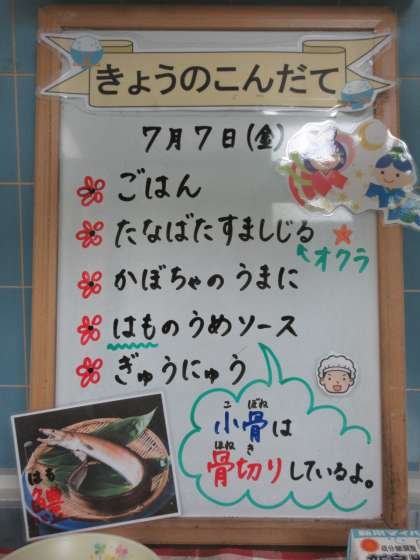 きょうのこんだて
7月7日(金)
ごはん
たなばたすましじる
オクラ
かぼちゃのうまに
はものうめソース
ぎゅうにゅう
小骨は
こぼね
骨切りしているよ。
ほねき
はも